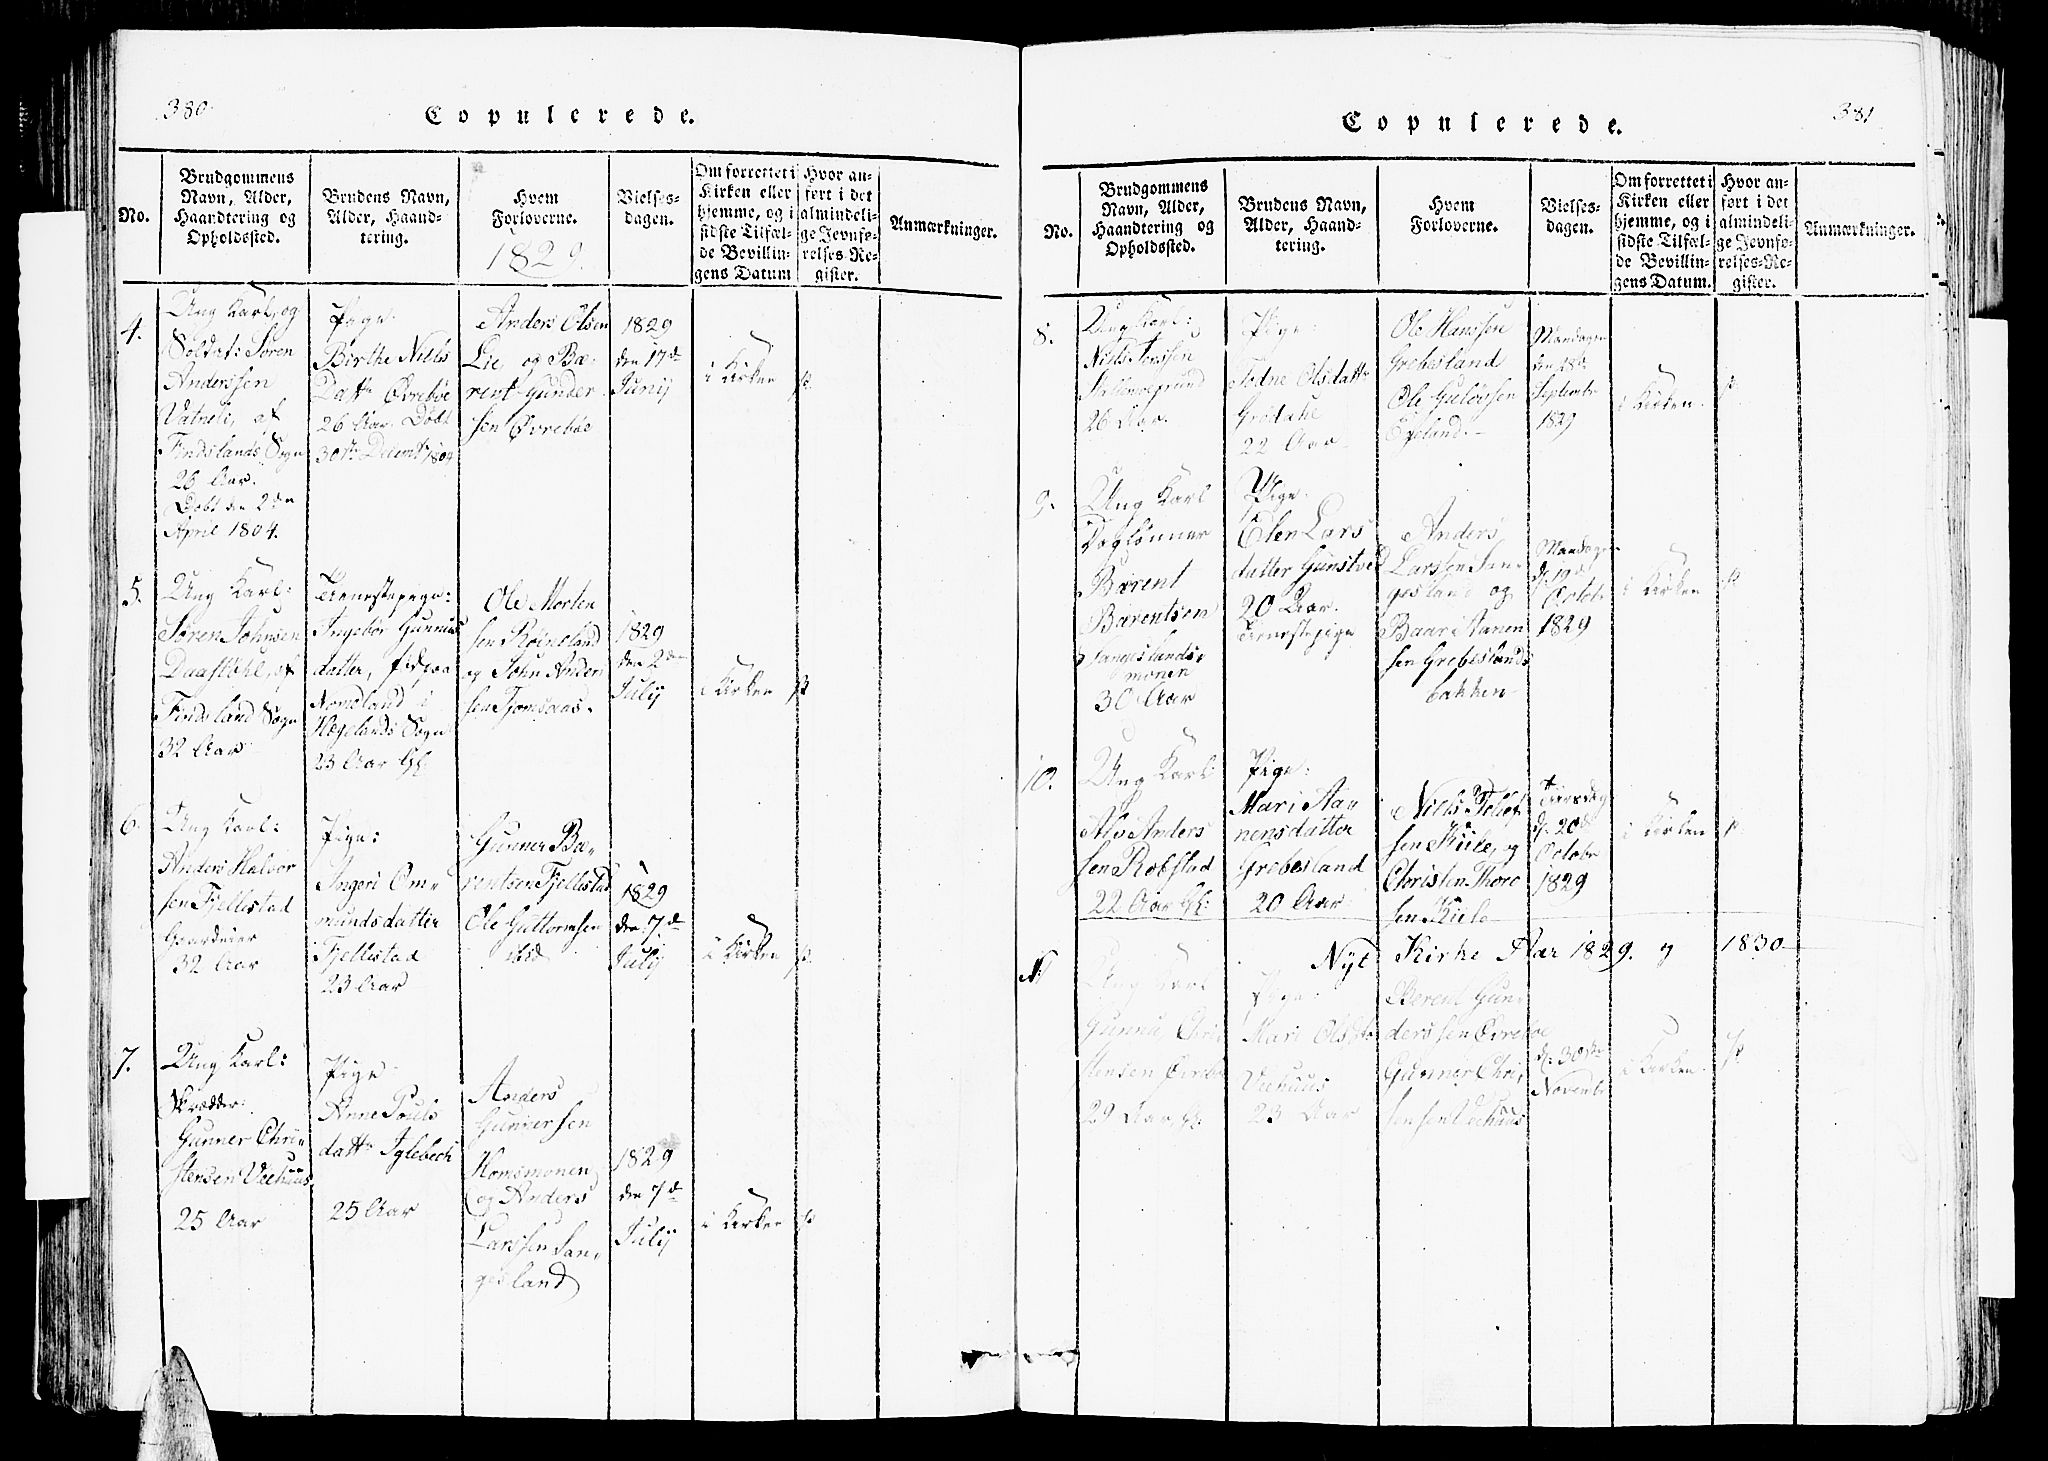 380
Copulerede.
No.
Brudgommens
Navn, Alder,
Haandtering og
Opholdssted.
Brudens Navn,
Alder, Haand-
tering.
Hvem
Forloverne.
1829.
Vielses-
dagen.
Om forrettet i
Kirken eller
hjemme, og i
sidste Tilfæl-
de Bevillin-
gens Datum
Hvor an-
ført i det
almindeli-
ge Jevnfø-
relses-Re-
gister.
Anmærkninger.
4.
Ung Karl, og
Soldat: Søren
Anderssen
Vatneli, af
Findslands Sogn
26 Aar.
Døbt den 2den
April 1804.
Pige.
Birthe Niels
Dattr Øvrebøe
26 Aar. Døbt
30te Decembr 1804
Anders Olsen
Lie, og Bæ-
rent Gunder
sen Øvrebøe
1829
den 17de
Junij
i Kirken
5.
Ung Karl:
Søren Johnsen
Daastøhl, af
Findsland Sogn
32 Aar
Tienestepige:
Ingebor Gunnus
datter,
Nomeland i
Hægelands Sogn
23 Aar Gl:
Ole Morten
sen Røineland
og John Anders
sen Tjomsaas.
1829
den 2den
Julij
i Kirken
6.
Ung Karl:
Anders Halvor
sen Fjellestad
Gaardeier
32 Aar
Pige:
Ingeri Om-
mundsdatter
Fjellestad
23 Aar
Gunner Bæ-
rentsen Fjellestad
Ole Guttormsen
ibid
1829
den 7de
Julij
i Kirken
7.
Ung Karl:
Skrædder:
Gunner Chri-
stensen Veehuus
25 Aar
Pige
Anne Pouls
dattr Iglebech
25 Aar
Anders
Gundersen
Homsmonen
og Anders
Larssen San-
gesland
1829
den 7de
Julij
i Kirken
381
Copulerede.
No.
Brudgommens
Navn, Alder,
Haandtering og
Opholdssted.
Brudens Navn,
Alder, Haand-
tering.
Hvem
Forloverne.
Vielses-
dagen.
Om forrettet i
Kirken eller
hjemme, og i
sidste Tilfæl-
de Bevillin-
gens Datum.
Hvor an-
ført i det
almindeli-
ge Jevnfø-
relses-Re-
gister.
Anmærkninger.
8.
Ung Karl:
Niels
26 Aar.
Pige:
Todne Olsdattr
Grødahl
22 Aar
Ole Hanssen
Grebesland
Ole Guløvsen
Egeland.
Mandagen
den 28de
Septembr
1829
i Kirken.
9.
Ung Karl
Daglønner
Bærent
Bærentsen
Sangeslands-
monen
30 Aar
Pige.
Elen Lars
datter Gunstved
20 Aar.
Tienestepige
Anders
Larssen San-
gesland og
Baar Aanen
sen Grebeslands
bakken
Mandagen
d: 19de
Octobr
1829
i Kirken
10.
Ung Karl
Alv Anders
sen Robstad
22 Aar Gl:
Pige:
Mari Aa-
nensdatter
Grebesland
20 Aar
Niels Tellef
sen Kiile, og
Christen Thore
sen Kiile
Tiirsdag
d: 20de
Octobr
1829
i Kirken
Nyt Kirke Aar 1829. og 1830
Ung Karl
Gunnu Chri
stensen Øvrebø
29 Aar, gl:
Pige:
Mari Olsdtr
Veehuus
23 Aar
Berent Gun-
derssen Øvrebøe
Gunner Chri-
stensen Veehuus
d: 30te
Novembr
i Kirken.